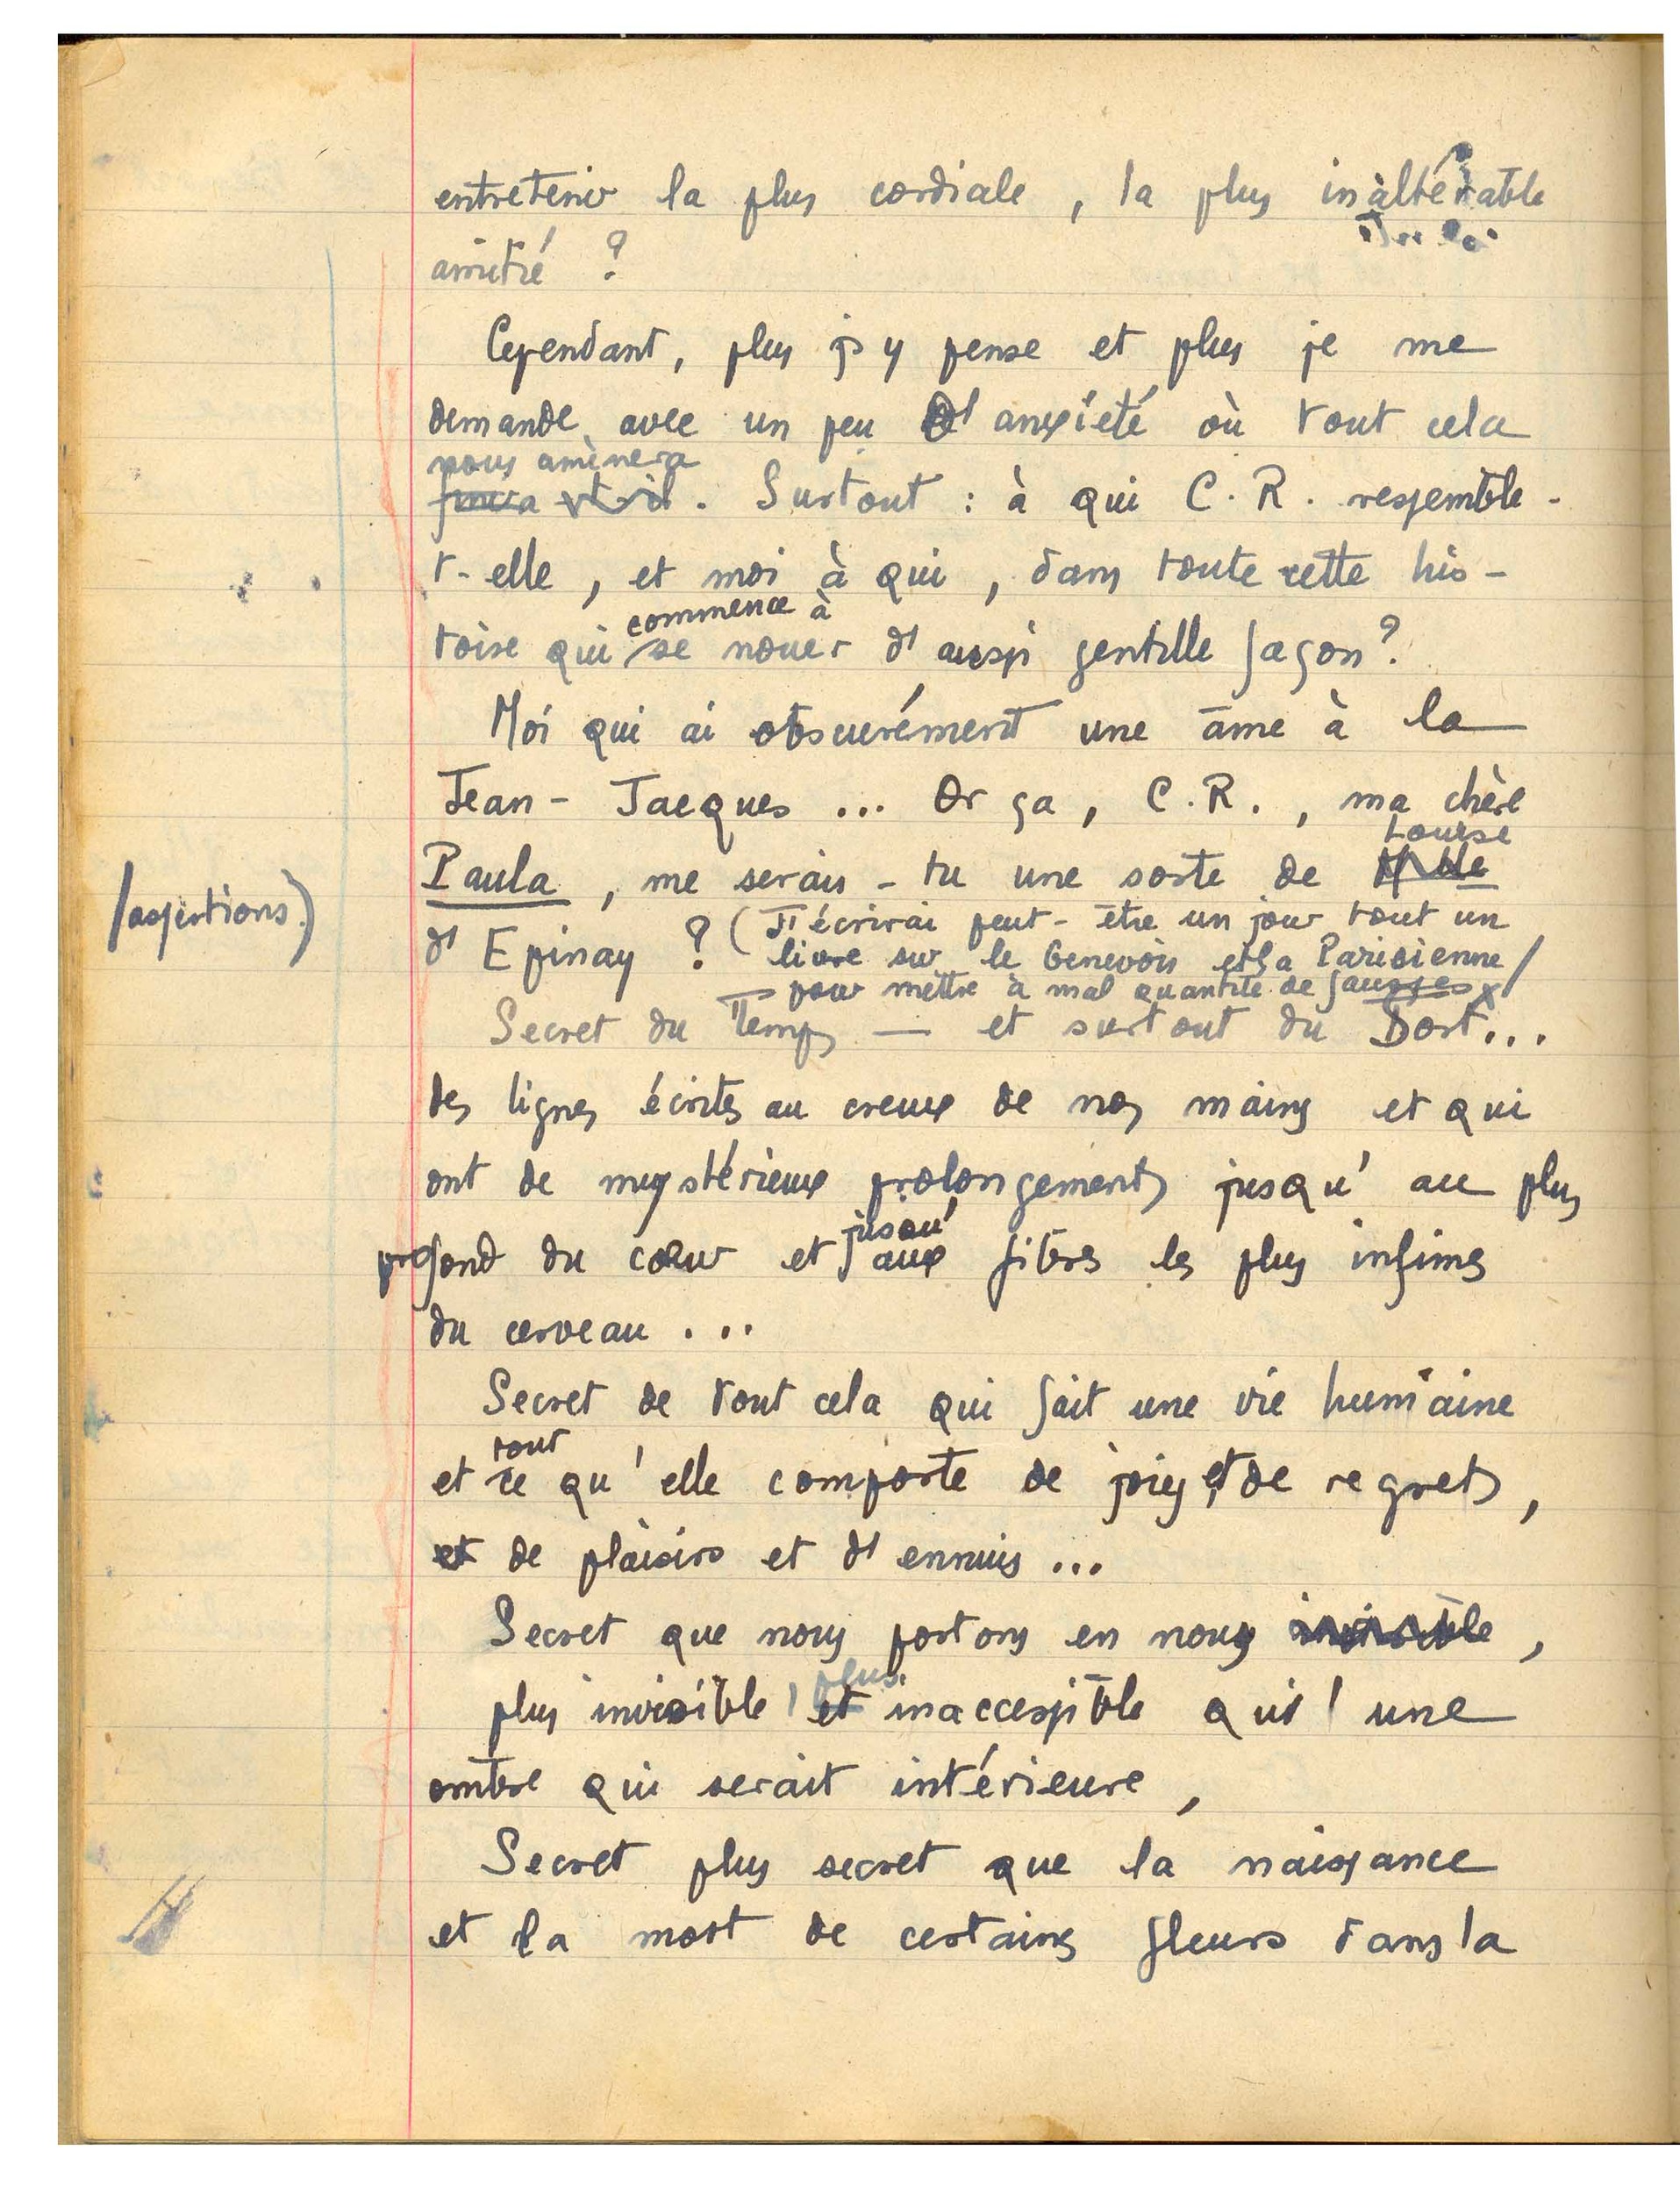 entretenir la plus cordiale, la plus inaltérable
amitié ?
Cependant, plus j'y pense et plus je me
demande avec un peu d'anxiété où tout cela
nous amènera
finira-t-il. Surtout : à qui C. R. ressemble-
t-elle, et moi à qui, dans toute cette his-
commence à
toire qui se nouer d'aussi gentille façon ?
Moi qui ai obscurément une âme à la
Jean-Jacques ... Or ça, C.R., ma chère
Louise
Paula, me serais-tu une sorte de Mde
d'Epinay ? (J'écrirai peut-être un jour tout un
livre sur le Genevois et la Parisienne /
pour mettre à mal quantité de fausses
/assertions.)
Secret du Temps — et surtout du Sort...
des lignes écrites au creux de nos mains et qui
ont de mystérieux prolongements jusqu'au plus
profond du cœur et jusqu'aux fibres les plus infimes
du cerveau ...
Secret de tout cela qui fait une vie humaine
tout
et ce qu'elle comporte de joies et de regrets,
et de plaisirs et d'ennuis ...
Secret que nous portons en nous invisible,
plus
plus invisible, et inaccessible qu'une
ombre qui serait intérieure,
Secret plus secret que la naissance
et la mort de certaines fleurs dans la